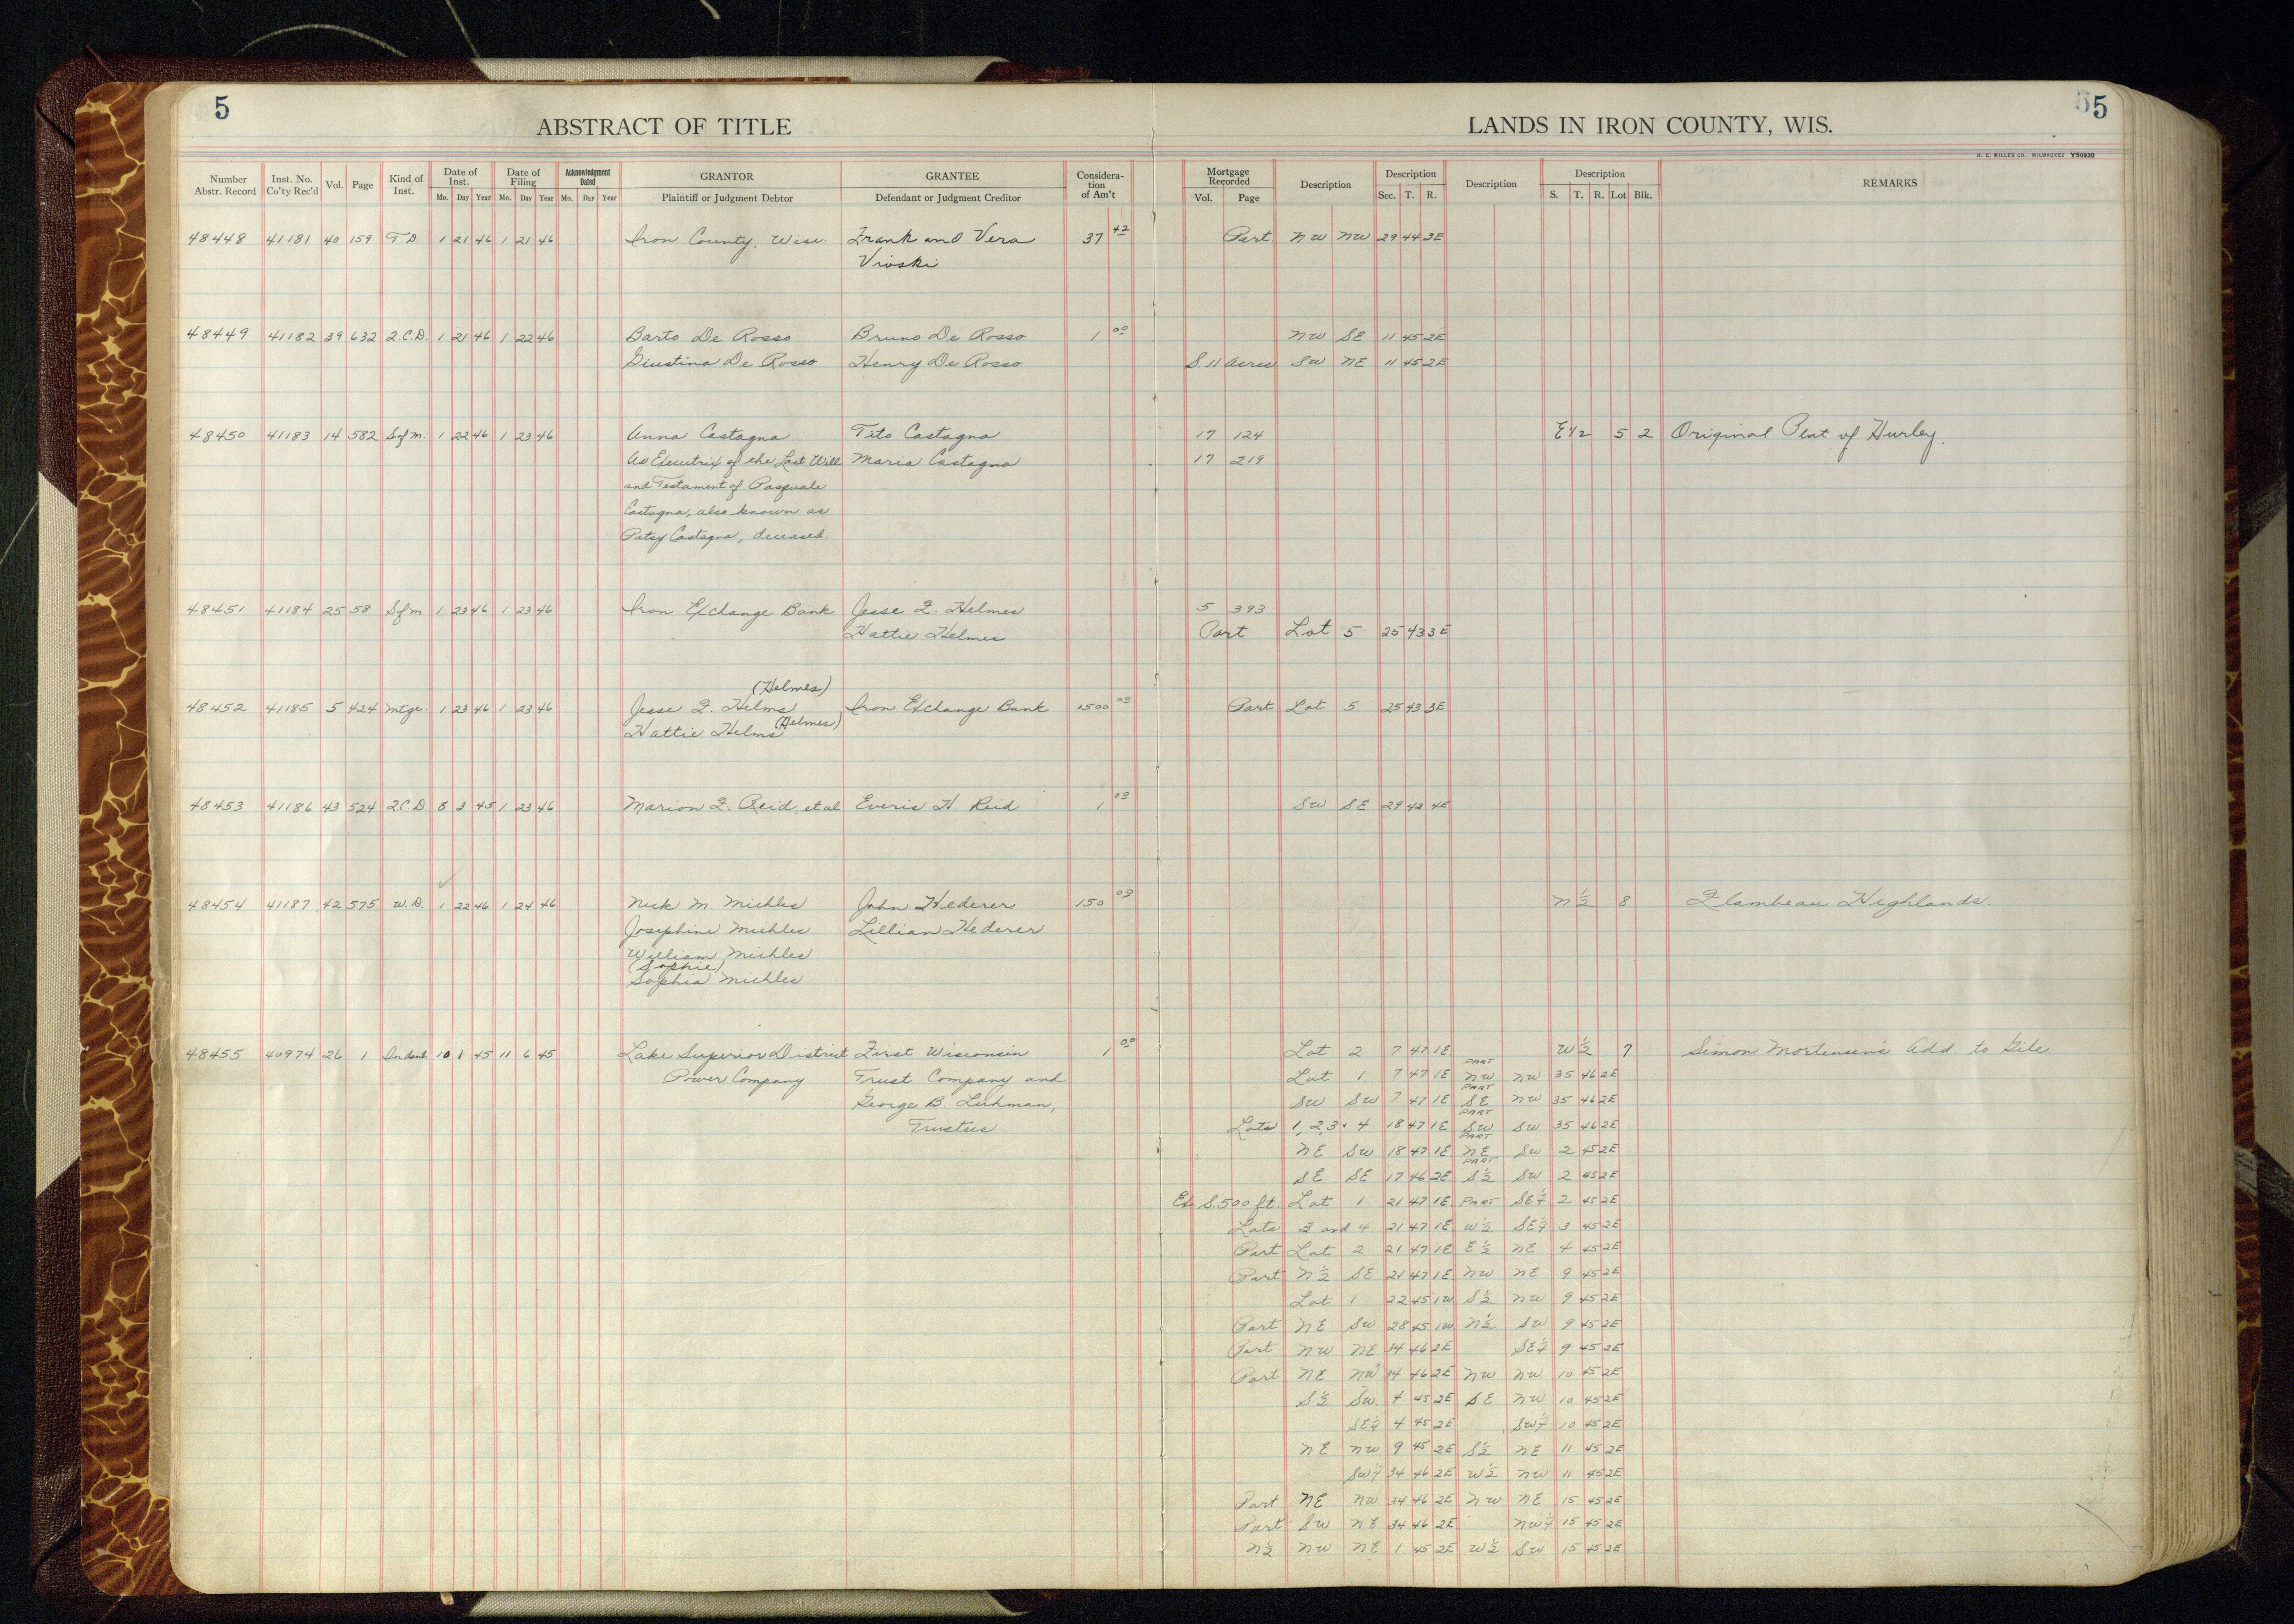 5
5
ABSTRACT OF TITLE
LANDS IN IRON COUNTY, WIS.
H. C. MILLER CO., MILWAUKEE Y50930
Number Abstr. Record Inst. No. Co'ty Rec'd Vol. Page Kind of Inst. Date of Inst. Mo. Day Year Date of Filing Mo. Day Year Acknowledgment Dated Mo. Day Year GRANTOR Plaintiff or Judgment Debtor GRANTEE Defendant or Judgment Creditor Considera-tion of Am't Mortgage Recorded Vol. Page Description Description Sec. T. R. Description Description S. T. R. Lot Blk. REMARKS
48448 41181 40 159 T.D. 1 21 46 1 21 46 Iron County, Wisc. Frank and Vera 37 42 Part NW NW 29 44 3E
Vioski
48449 41182 39 632 Q.C.D. 1 21 46 1 22 46 Barto De Rosso Bruno De Rosso 1 00 NW SE 11 45 2E
Giustina De Rosso Henry De Rosso S. 11 Acres SW NE 11 45 2E
48450 41183 14 582 Sfm. 1 22 46 1 23 46 Anna Castagna Tito Castagna 17 124 E 1/2 5 2 Original Plat of Hurley.
As Executrix of the Last Will Maria Castagna 17 219
and Testament of Pasquale
Castagna, also known as
Patsy Castagna, deceased.
48451 41184 25 58 Sfm 1 23 46 1 23 46 Iron Exchange Bank Jesse F. Helmes 5 393
Hattie Helmes Part Lot 5 25 43 3E
(Helmes)
48452 41185 5 424 Mtge. 1 23 46 1 23 46 Jesse F. Helms Iron Exchange Bank 1500 00 Part Lot 5 25 43 3E
Hattie Helms (Helmes)
48453 41186 43 524 Q.C.D. 8 3 45 1 23 46 Marion F. Reid, et al Everis H. Reid 1 00 SW SE 29 43 4E
48454 41187 42 575 W.D. 1 22 46 1 24 46 Nick M. Michles John Hederer 150 00 N 1/2 8 Flambeau Highlands.
Josephine Michles Lillian Hederer
William Michles
(Sophie)
Sophia Michles
48455 40974 26 1 Indent 10 1 45 11 6 45 Lake Superior District First Wisconsin 1 00 Lot 2 7 47 1E W 1/2 7 Simon Mortensen's Add. to Gile
Power Company Trust Company and Lot 1 7 47 1E PART NW NW 35 46 2E
George B. Luhman, SW SW 7 47 1E PART SE NW 35 46 2E
Trustees Lots 1, 2, 3 & 4 18 47 1E PART SW SW 35 46 2E
NE SW 18 47 1E PART NE SW 2 45 2E
SE SE 17 46 2E PART S 1/2 SW 2 45 2E
Ex. S. 500 ft. Lot 1 21 47 1E PART SE 1/4 2 45 2E
Lots 3 and 4 21 47 1E W 1/2 SE 1/4 3 45 2E
Part Lot 2 21 47 1E E 1/2 NE 4 45 2E
Part N 1/2 SE 21 47 1E NW NE 9 45 2E
Lot 1 22 45 1W S 1/2 NW 9 45 2E
Part NE SW 28 45 1W N 1/2 SW 9 45 2E
Part NW NE 34 46 2E SE 1/4 9 45 2E
Part NE NW 34 46 2E NW NW 10 45 2E
S 1/2 SW 4 45 2E SE NW 10 45 2E
SE 1/4 4 45 2E SW 1/4 10 45 2E
NE NW 9 45 2E S 1/2 NE 11 45 2E
SW 1/4 34 46 2E W 1/2 NW 11 45 2E
Part NE NW 34 46 2E NW NE 15 45 2E
Part SW NE 34 46 2E NW 1/4 15 45 2E
N 1/2 NW NE 1 45 2E W 1/2 SW 15 45 2E